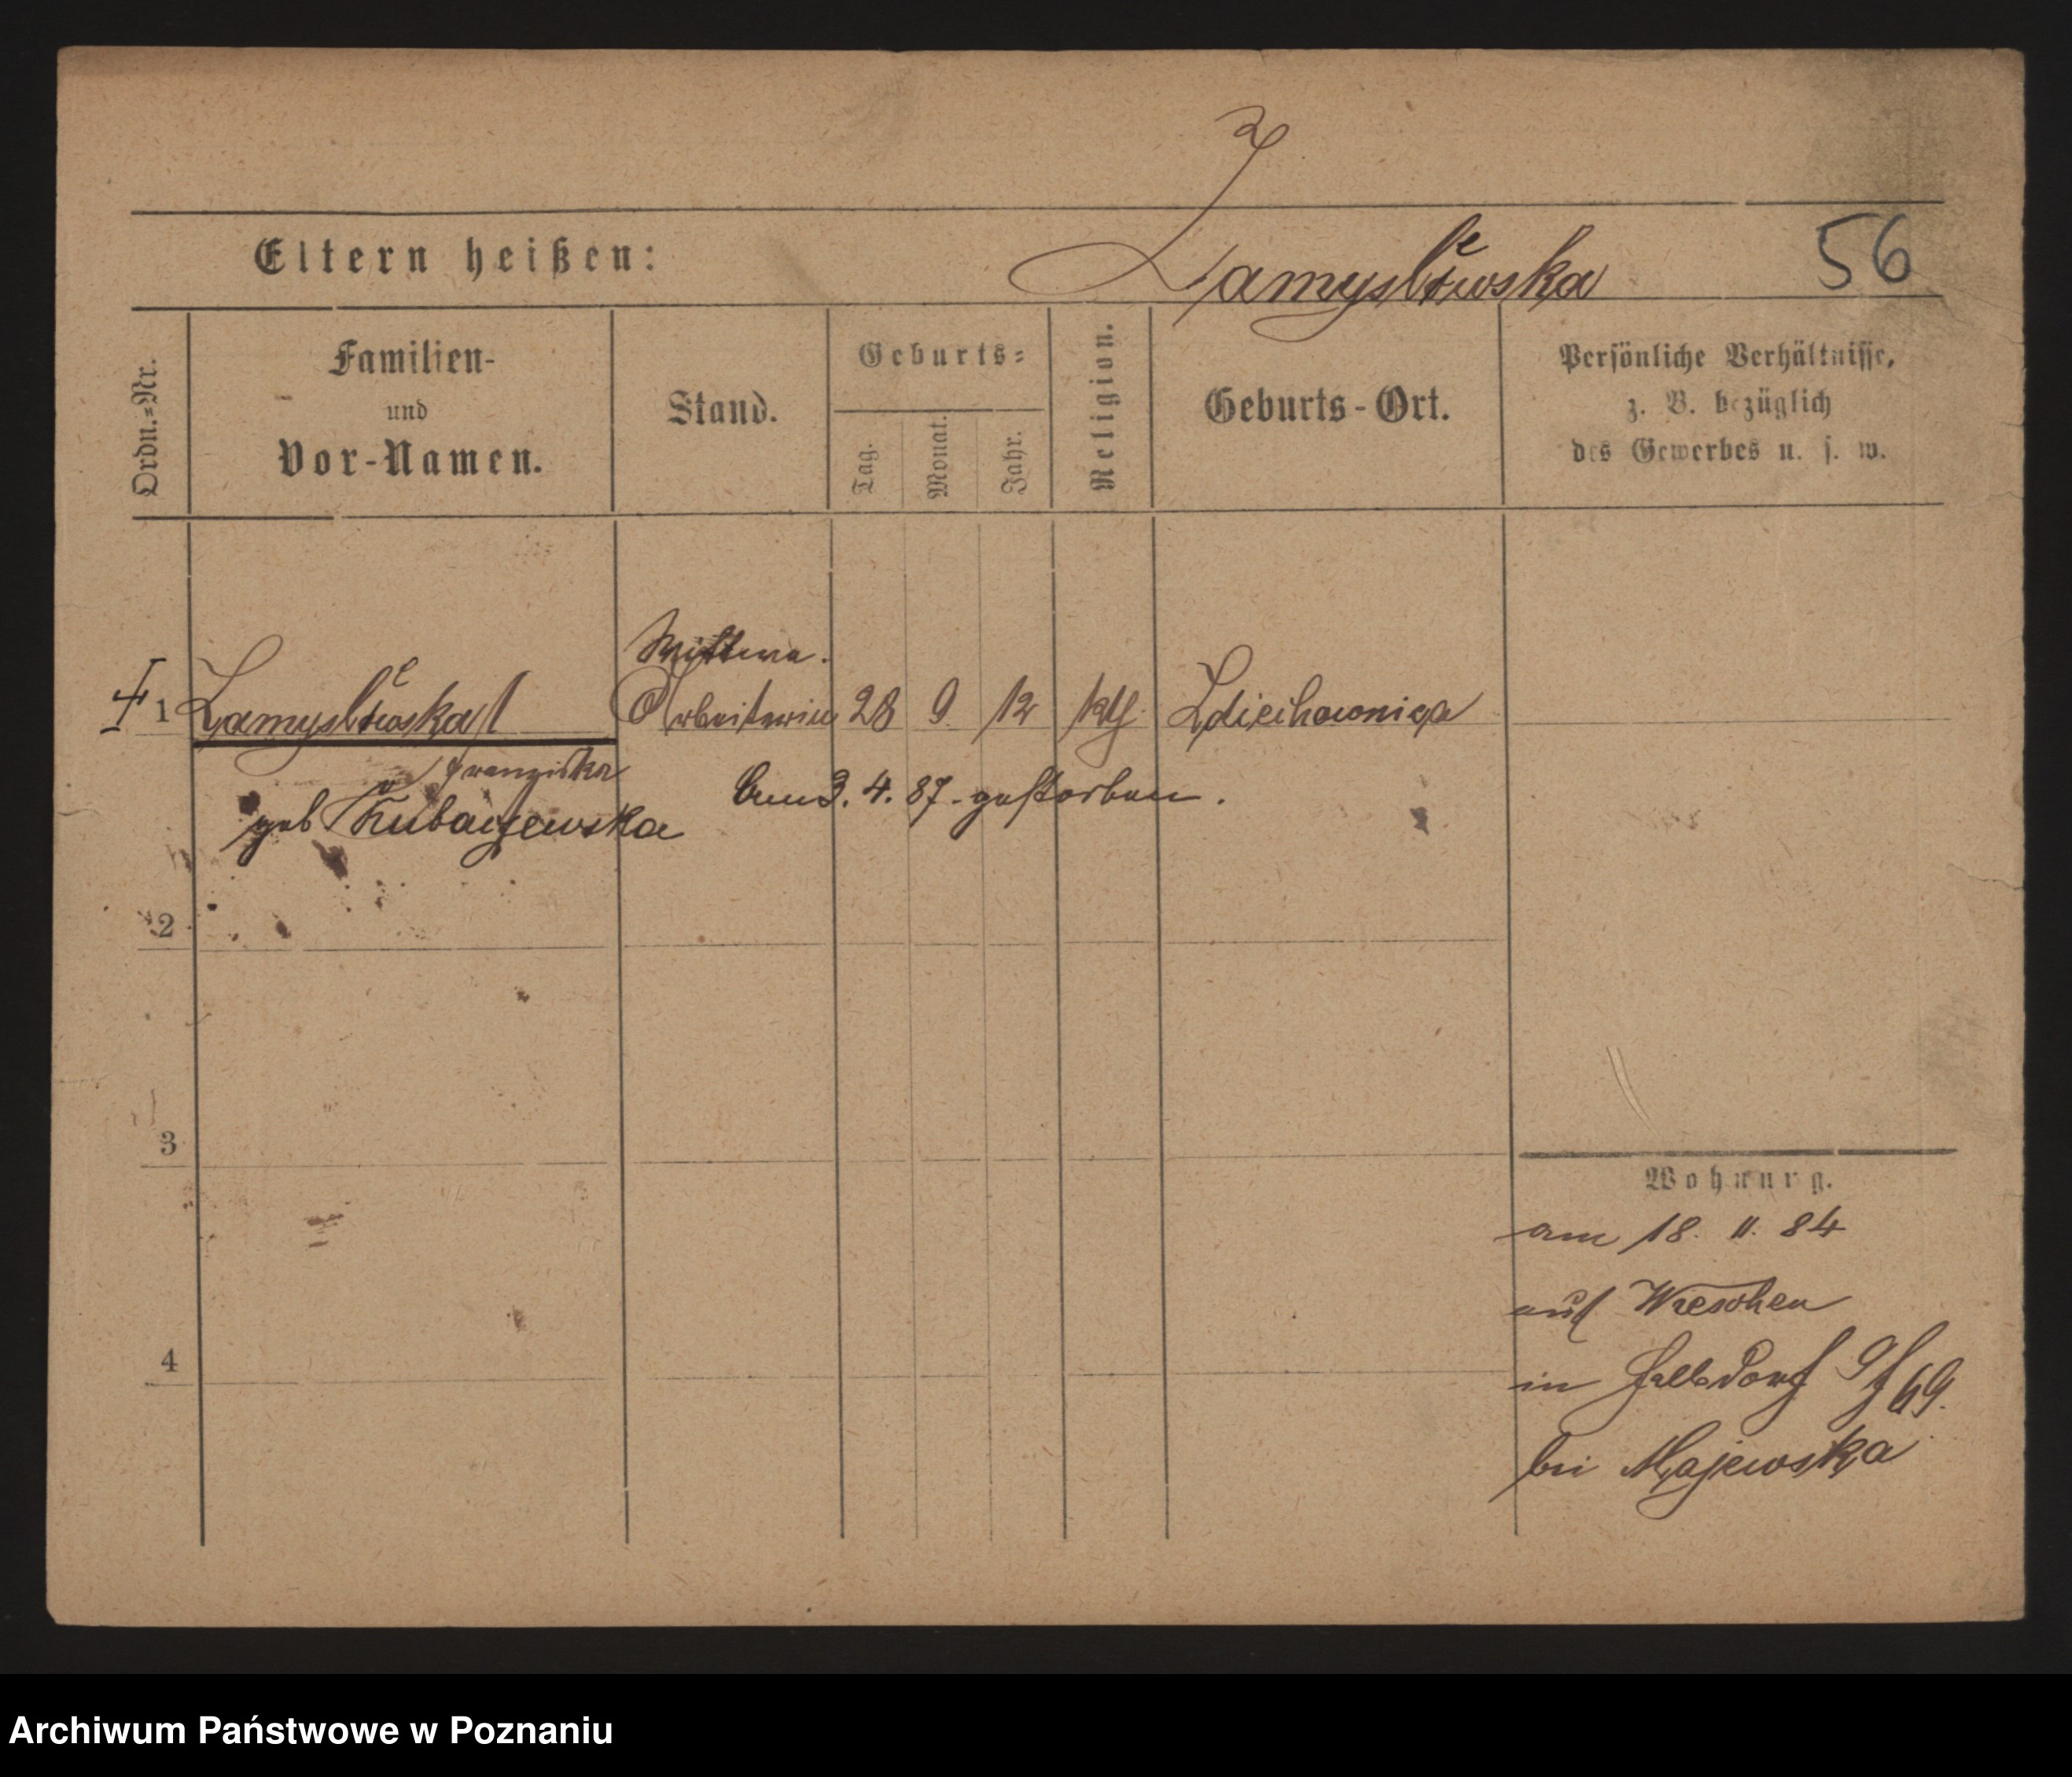 Z
Eltern heißen: Zamyslewska 56
Ordn.=Nr.
Familien-
und
Vor-Namen.
Stand.
Geburts=
Tag.
Monat.
Jahr.
Religion.
Geburts-Ort.
Persönliche Verhältnisse,
z. B. bezüglich
des Gewerbes u. s. w.
Wittwe.
1 Zamyslewska Arbeiterin 28 9 12 kth Zdziechowniça
Franziska
geb Kubaczewska
Am 3. 4. 87. gestorben.
2
3
4
Wohnung.
am 18. 11. 84
aus Wreschen
in 69.
bei Majewska
Archiwum Państwowe w Poznaniu